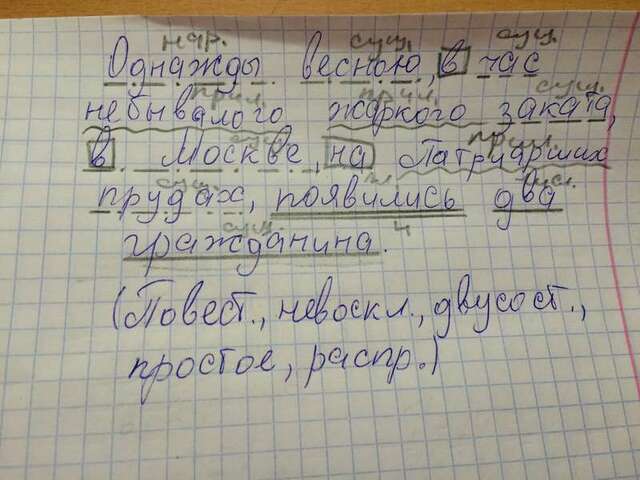 нар. сущ. сущ.
Однажды весною, в час
прил. прил. сущ.
небывалого жаркого заката,
сущ. прил.
в Москве, на Патриарших
сущ. гл. числ.
прудах, появились два
сущ. 4
гражданина.
(Повест., невоскл., двусост.,
простое, распр.)